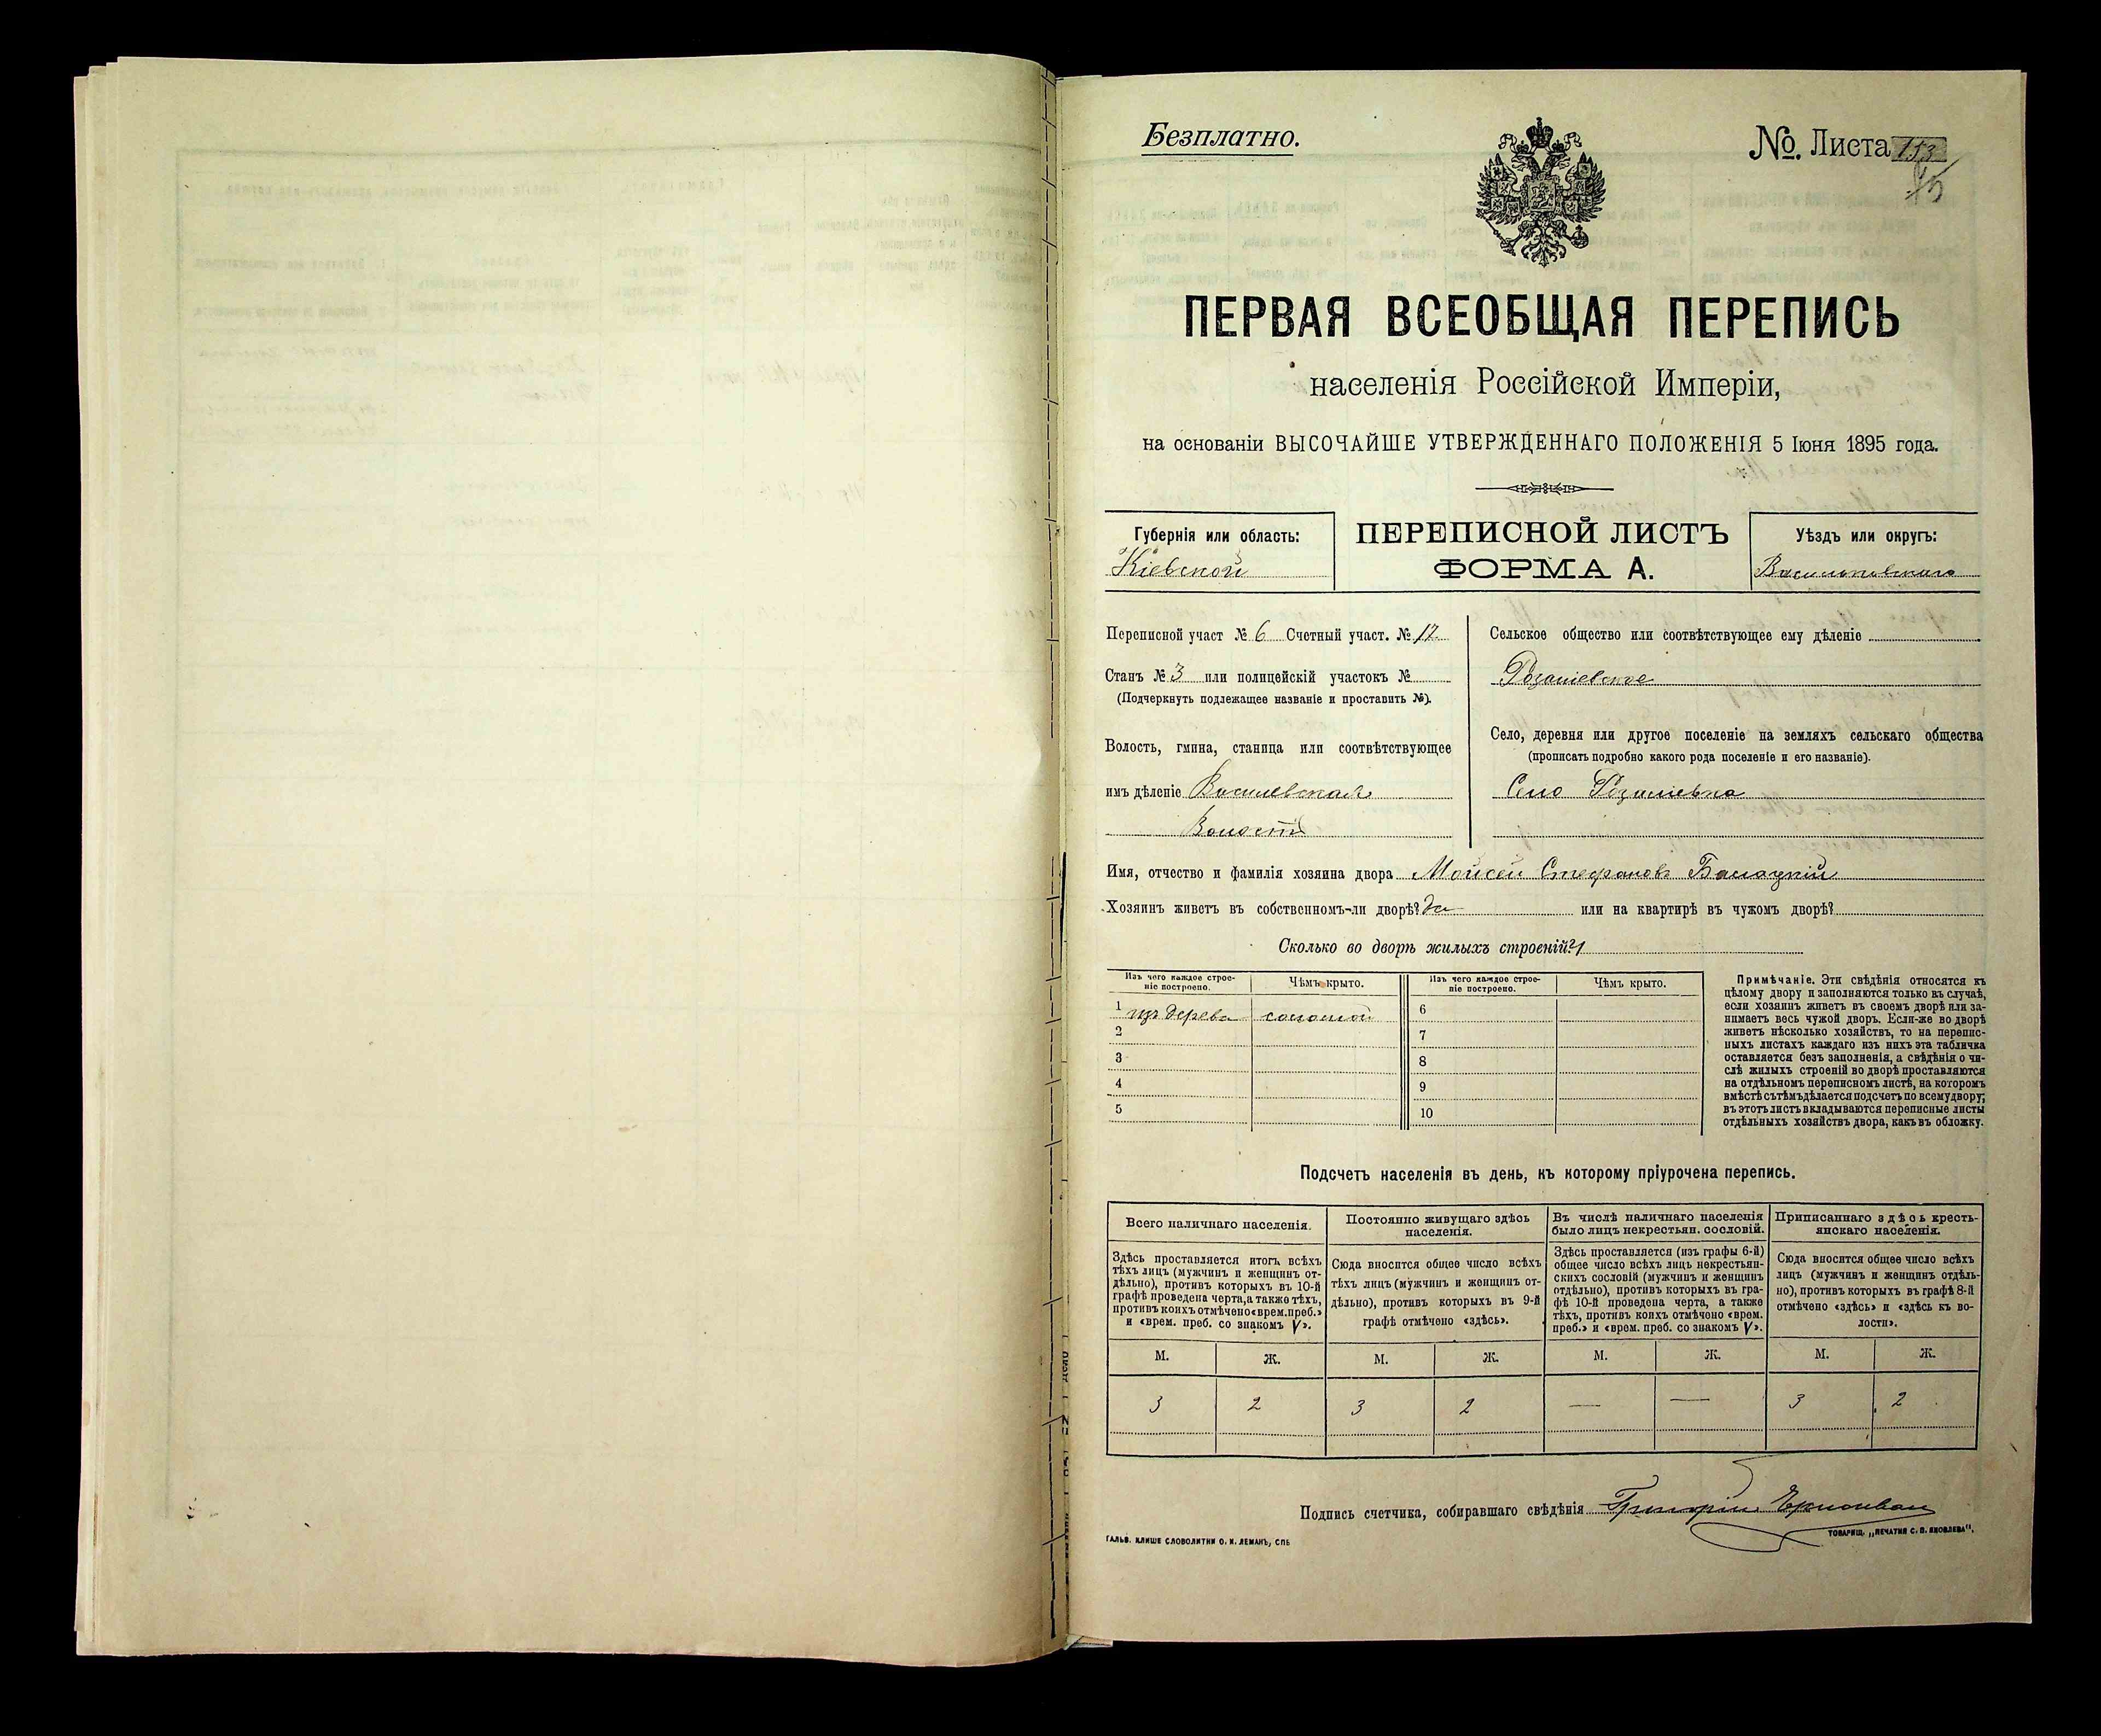 Безплатно.
№. Листа 153
ПЕРВАЯ ВСЕОБЩАЯ ПЕРЕПИСЬ
населенія Россійской Имперіи,
на основаніи ВЫСОЧАЙШЕ УТВЕРЖДЕННАГО ПОЛОЖЕНІЯ 5 Іюня 1895 года.
Губернія или область:
Кіевской
ПЕРЕПИСНОЙ ЛИСТЪ
ФОРМА А.
Уѣздъ или округъ:
Васильковскаго
Переписной участ № 6 Счетный участ. № 12
Станъ № 3 или полицейскій участокъ №
(Подчеркнуть подлежащее названіе и проставить №).
Волость, гмина, станица или соотвѣтствующее
имъ дѣленіе
Волость
Сельское общество или соотвѣтствующее ему дѣленіе
Розаліевское
Село, деревня или другое поселеніе на земляхъ сельскаго общества
(прописать подробно какого рода поселеніе и его названіе).
Село Розаліевка
Имя, отчество и фамилія хозяина двора Мойсей Стефановъ
Хозяинъ живетъ въ собственномъ-ли дворѣ? да или на квартирѣ въ чужомъ дворѣ?
Сколько во дворѣ жилыхъ строеній? 1
Изъ чего каждое строе-
ніе построено.
Чѣмъ крыто.
Изъ чего каждое строе-
ніе построено.
Чѣмъ крыто.
1 изъ дерева соломой 6
2 7
3 8
4 9
5 10
Примѣчаніе. Эти свѣдѣнія относятся къ
цѣлому двору и заполняются только въ случаѣ,
если хозяинъ живетъ въ своемъ дворѣ или за-
нимаетъ весь чужой дворъ. Если-же во дворѣ
живетъ нѣсколько хозяйствъ, то на перепис-
ныхъ листахъ каждаго изъ нихъ эта табличка
оставляется безъ заполненія, а свѣдѣнія о чи-
слѣ жилыхъ строеній во дворѣ проставляются
на отдѣльномъ переписномъ листѣ, на которомъ
вмѣстѣ съ тѣмъ дѣлается подсчетъ по всему двору;
въ этотъ листъ вкладываются переписные листы
отдѣльныхъ хозяйствъ двора, какъ въ обложку.
Подсчетъ населенія въ день, къ которому пріурочена перепись.
Всего наличнаго населенія.
Здѣсь проставляется итогъ всѣхъ
тѣхъ лицъ (мужчинъ и женщинъ от-
дѣльно), противъ которыхъ въ 10-й
графѣ проведена черта, а также тѣхъ,
противъ коихъ отмѣчено «врем. преб.»
и «врем. преб. со знакомъ V».
Постоянно живущаго здѣсь
населенія.
Сюда вносится общее число всѣхъ
тѣхъ лицъ (мужчинъ и женщинъ от-
дѣльно), противъ которыхъ въ 9-й
графѣ отмѣчено «здѣсь».
Въ числѣ наличнаго населенія
было лицъ некрестьян. сословій.
Здѣсь проставляется (изъ графы 6-й)
общее число всѣхъ лицъ некрестьян-
скихъ сословій (мужчинъ и женщинъ
отдѣльно), противъ которыхъ въ гра-
фѣ 10-й проведена черта, а также
тѣхъ, противъ коихъ отмѣчено «врем.
преб.» и «врем. преб. со знакомъ V».
Приписаннаго здѣсь кресть-
янскаго населенія.
Сюда вносится общее число всѣхъ
лицъ (мужчинъ и женщинъ отдѣль-
но), противъ которыхъ въ графѣ 8-й
отмѣчено «здѣсь» и «здѣсь къ во-
лости».
М. Ж. М. Ж. М. Ж. М. Ж.
3 2 3 2 — — 3 2
Подпись счетчика, собиравшаго свѣдѣнія Григорій
ГАЛЬВ. КЛИШЕ СЛОВОЛИТНИ О. И. ЛЕМАНЪ, СПБ
ТОВАРИЩ. „ПЕЧАТНЯ С. П. ЯКОВЛЕВА".